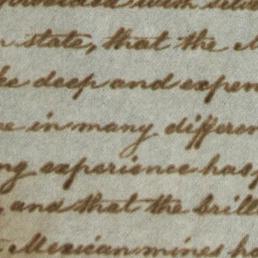 state, that the M
ke deep and expen
e in many differen
ng experience has
, and that the brill
Mexican mines ha